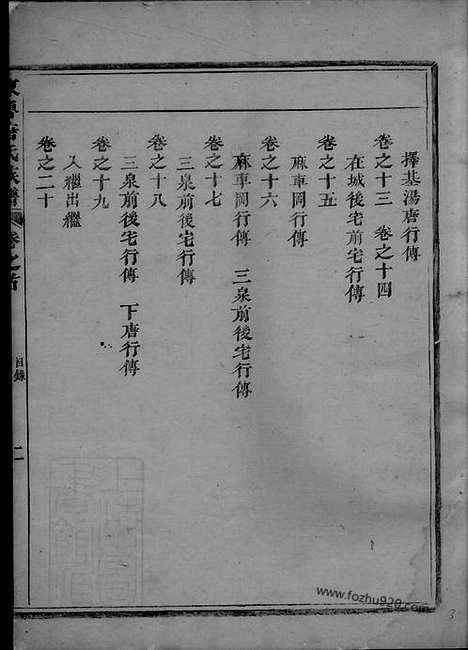 擇基湯唐行傳
卷之十三　卷之十四
在城後宅前宅行傳
卷之十五
麻車岡行傳
卷之十六
麻車岡行傳　三泉前後宅行傳
卷之十七
三泉前後宅行傳
卷之十八
三泉前後宅行傳　下唐行傳
卷之十九
入繼出繼
卷之二十
卷之首
目錄
二
www.fozhu920.com
3